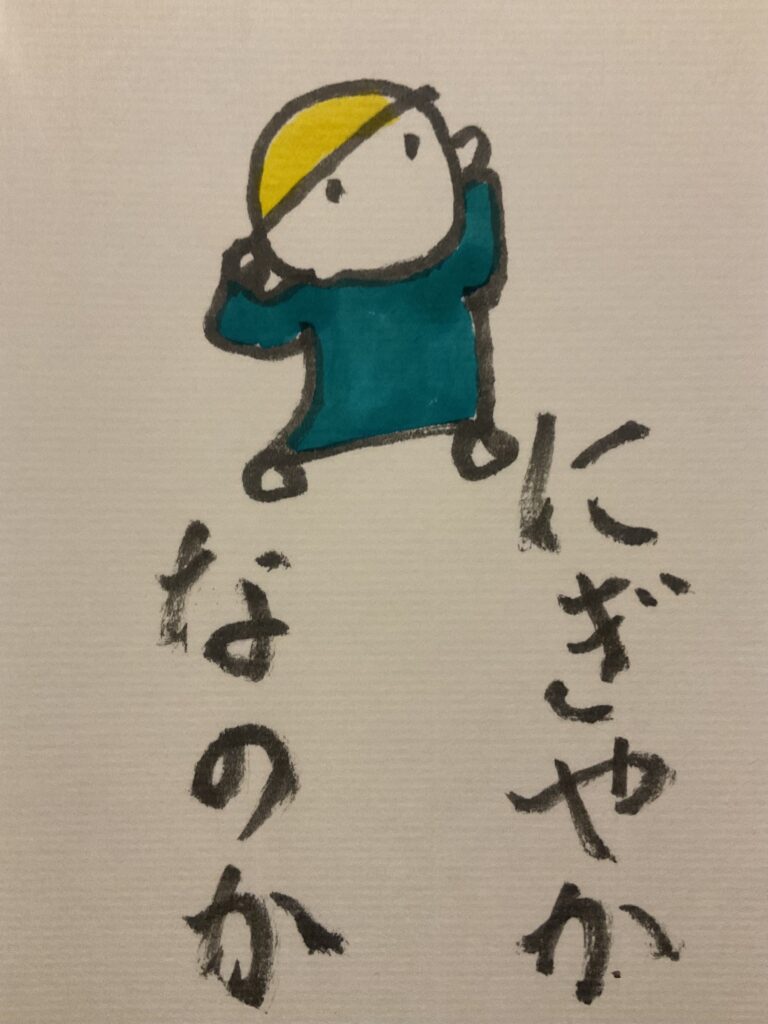 にぎやか
なのか